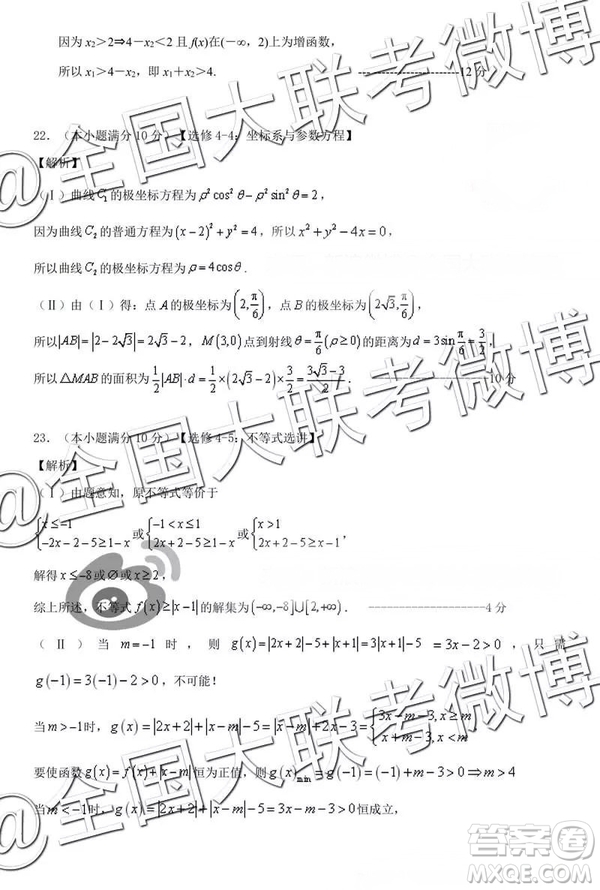 因为 x₂>2⇒4－x₂<2 且 f(x)在(－∞，2)上为增函数，
所以 x₁>4－x₂，即 x₁＋x₂>4. ----------------12 分
22．（本小题满分 10 分）【选修 4-4：坐标系与参数方程】
【解析】
（Ⅰ）曲线 C₁ 的极坐标方程为 ρ²cos²θ－ρ²sin²θ＝2，
因为曲线 C₂ 的普通方程为 (x－2)²＋y²＝4，所以 x²＋y²－4x＝0，
所以曲线 C₂ 的极坐标方程为 ρ＝4cosθ．
（Ⅱ）由（Ⅰ）得：点 A 的极坐标为 (2, π/6)，点 B 的极坐标为 (2√3, π/6)，
所以|AB|＝|2－2√3|＝2√3－2，M(3,0)点到射线 θ＝π/6 (ρ≥0) 的距离为 d＝3sin π/6＝3/2，
所以△MAB 的面积为 1/2|AB|·d＝1/2×(2√3－2)×3/2＝(3√3－3)/2．----------------10 分
23．（本小题满分 10 分）【选修 4-5：不等式选讲】
【解析】
（Ⅰ）由题意知，原不等式等价于
{x≤－1, －2x－2－5≥1－x 或 {－1<x≤1, 2x＋2－5≥1－x 或 {x>1, 2x＋2－5≥x－1，
解得 x≤－8 或 ∅ 或 x≥2，
综上所述，不等式 f(x)≥|x－1| 的解集为 (－∞,－8]∪[2,＋∞)．----------------4 分
（Ⅱ）当 m＝－1 时，则 g(x)＝|2x＋2|－5＋|x＋1|＝3|x＋1|－5 ＝3x－2>0，只需
g(－1)＝3(－1)－2>0，不可能！
当 m>－1时，g(x)＝|2x＋2|＋|x－m|－5＝|x－m|＋2x－3＝{3x－m－3, x≥m x＋m－3, x<m
要使函数 g(x)＝f(x)＋|x－m| 恒为正值，则 g(x)min＝g(－1)＝(－1)＋m－3>0⇒m>4
当 m<－1时，g(x)＝|2x＋2|＋|x－m|－5＝3x－m－3>0 恒成立，
@全国大联考微博
@全国大联考微博
@全国大联考微博
答案圈
MXQE.COM